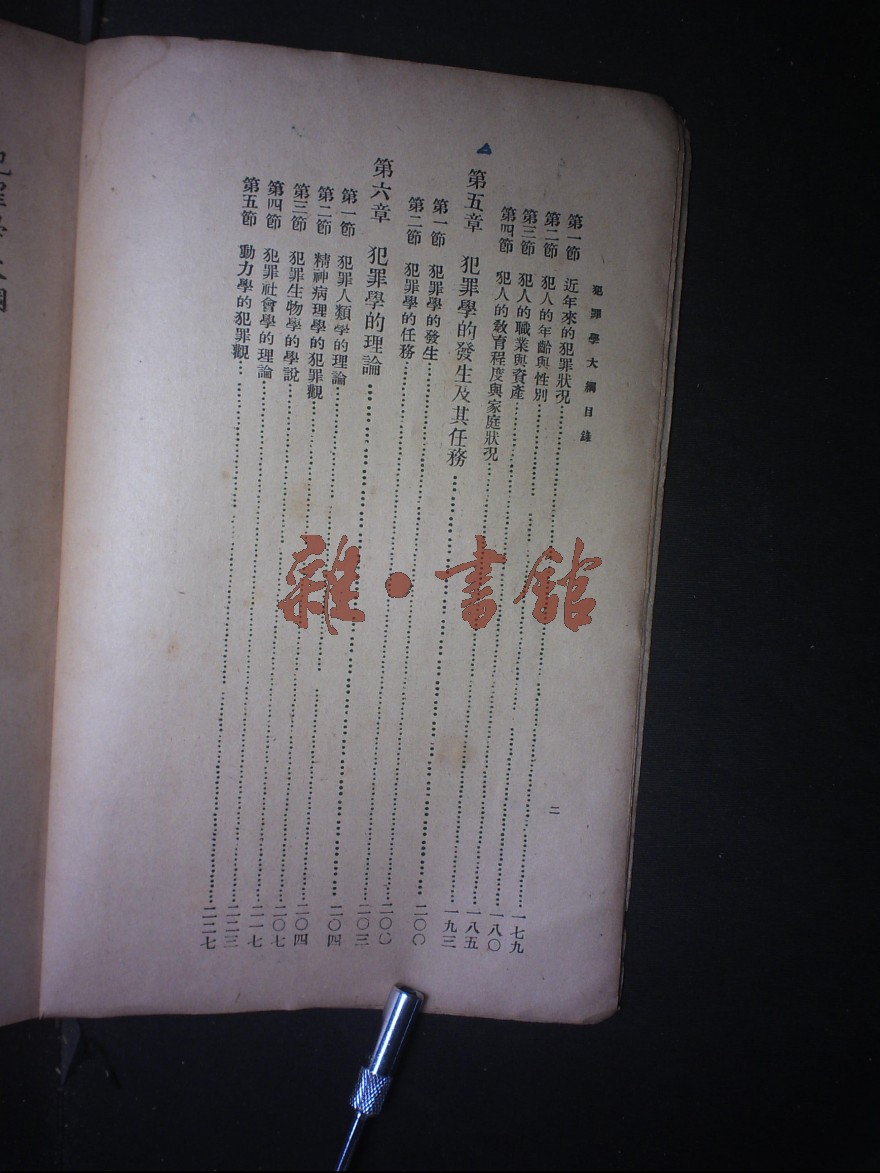 犯罪學大綱目錄
二
第一節 近年來的犯罪狀況……一七九
第二節 犯人的年齡與性別……一八〇
第三節 犯人的職業與資產……一八五
第四節 犯人的教育程度與家庭狀況……一九三
第五章 犯罪學的發生及其任務……二〇〇
第一節 犯罪學的發生……二〇〇
第二節 犯罪學的任務……二〇三
第六章 犯罪學的理論……二〇四
第一節 犯罪人類學的理論……二〇四
第二節 精神病理學的犯罪觀……二〇七
第三節 犯罪生物學的學說……二一七
第四節 犯罪社會學的理論……二二三
第五節 動力學的犯罪觀……二二七
雜·書館